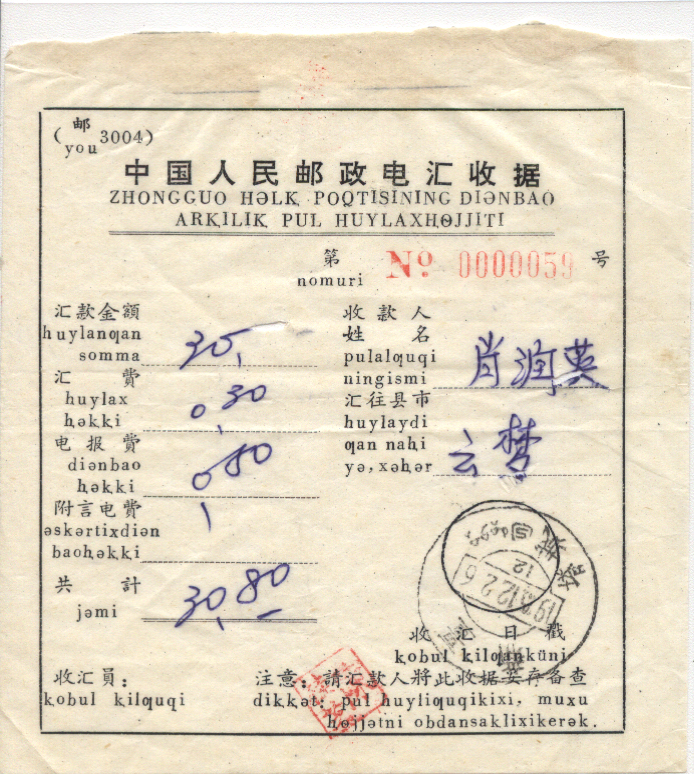 (邮you3004)
中国人民邮政电汇收据
ZHONGGUO HƏLK POQTISINING DIƏNBAO
ARKILIK PUL HUYLAXHƟJJITI
第 nomuri № 0000059 号
汇款金額
huylanƣan
somma
汇 費
huylax
həkki
0.30
电报費
diənbao
həkki
附言电費
əskərtixdiən
baohəkki
共 計
jəmi
30.80
收款人
姓 名
pulalƣuqi
ningismi
肖润英
汇往县市
huylaydi
ƣan nahi
yə, xəhər
云梦
收 汇 日 戳
kobul kilƣanküni
收汇員:
kobul kilƣuqi
注意: 請汇款人將此收据妥存备查
dikkət: pul huyliquqikixi, muxu
hɵjjətni obdansaklixikerək.